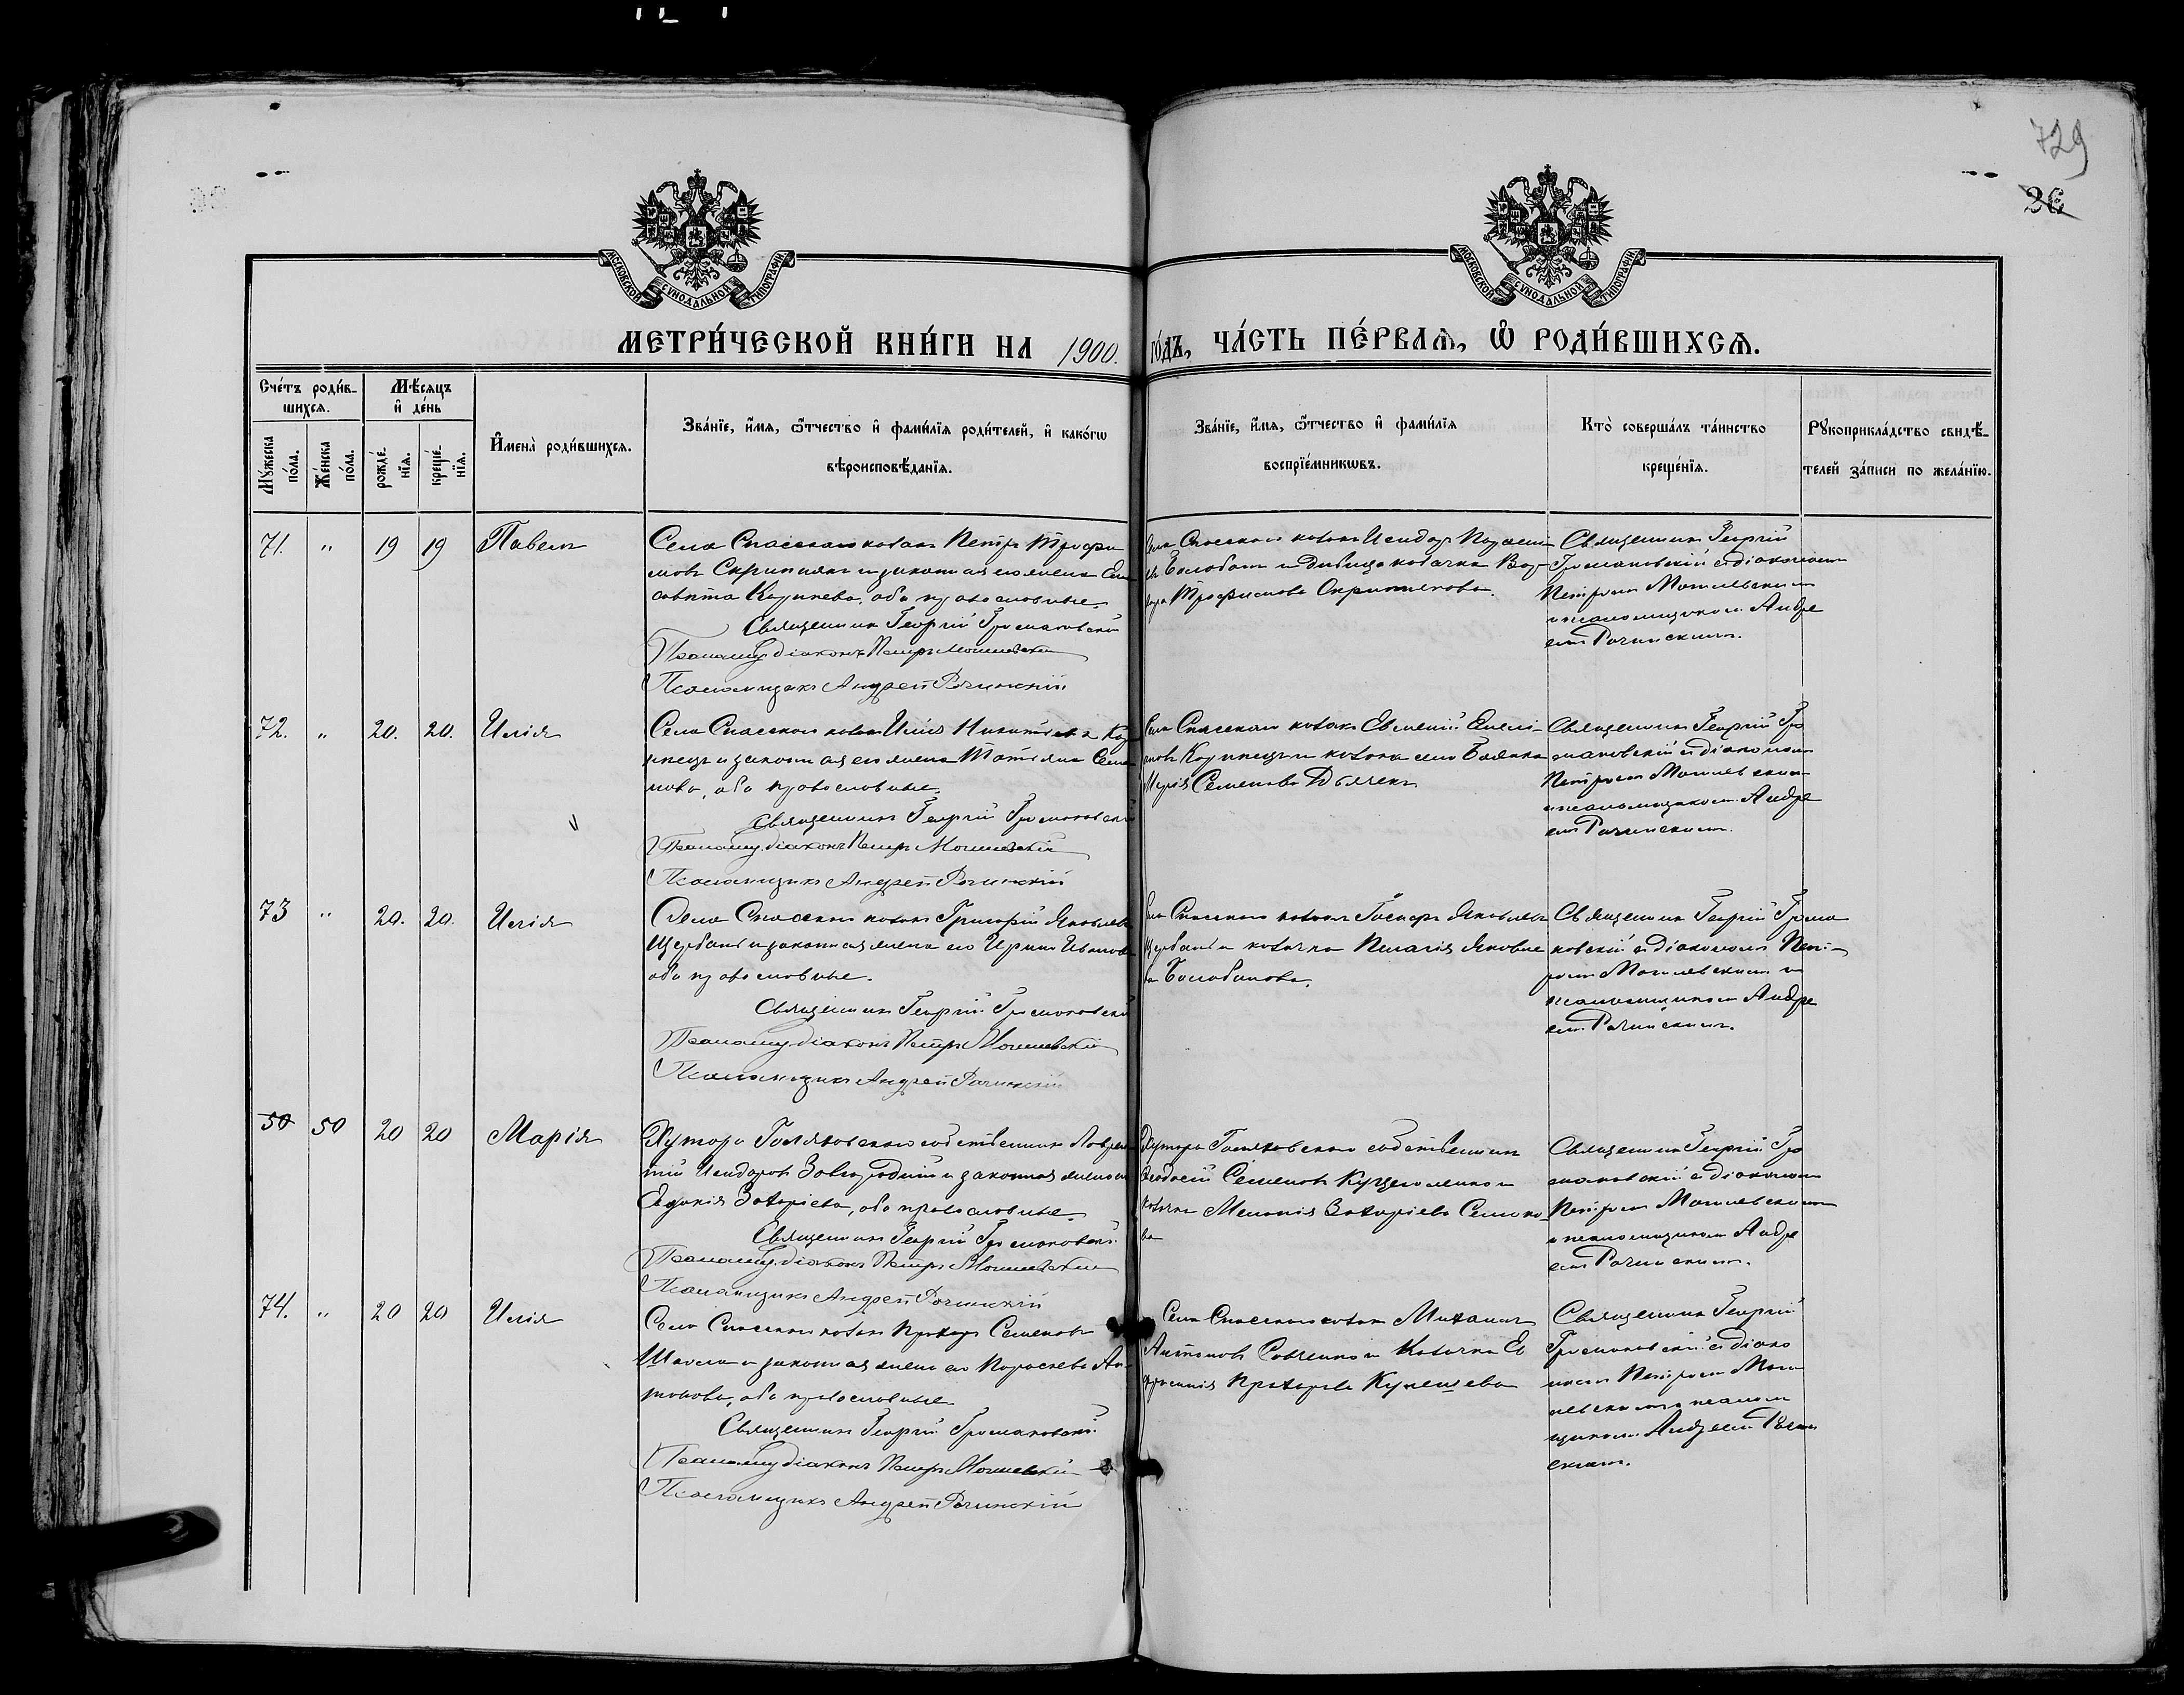 729
26
МОСКОВСКОЙ СѴНОДАЛЬНОЙ ТИПОГРАФІИ
МОСКОВСКОЙ СѴНОДАЛЬНОЙ ТИПОГРАФІИ
МЕТРИ́ЧЕСКОЙ КНИ́ГИ НА 1900. ГО́ДЪ, ЧА́СТЬ ПЕ́РВАѦ, Ѽ РОДИ́ВШИХСѦ.
Сче́тъ роди́в-
шихсѧ.
Мꙋ́жеска по́ла.
Же́нска по́ла.
Мѣ́сѧцъ
и҆ де́нь
рожде́нїѧ.
креще́нїѧ.
И҆мена̀ роди́вшихсѧ.
Зва́нїе, и҆́мѧ, ѻ҆́тчество и҆ фами́лїѧ роди́телей, и҆ како́гѡ
вѣроисповѣ́данїѧ.
Зва́нїе, и҆́мѧ, ѻ҆́тчество и҆ фами́лїѧ
воспрїе́мникѡвъ.
Кто̀ соверша́лъ та́инство
креще́нїѧ.
Рꙋкоприкла́дство свидѣ́-
телей за́писи по жела́нїю.
71. " 19 19 Павелъ
Села Спасскаго козакъ Петръ Трофи
мовъ Скрипникъ и законная его жена Ели
савета Карпиева, оба православные.
Священникъ Георгій Громаковскій
діаконъ Петръ Могилевскій
Псаломщикъ Андрей Рачинскій
Села Спасскаго козакъ Исидоръ
и дѣвица козачка Вар-
вара Трофимова Скрипникова.
Священникъ Георгій
Громаковскій съ діакономъ
Петромъ Могилевскимъ
и псаломщикомъ Андре
емъ Рачинскимъ.
72. " 20. 20. Илія
Села Спасскаго козакъ Илія Никитинъ
и законная его жена Татіана Семе
нова, оба православные.
Священникъ Георгій Громаковскій
діаконъ Петръ Могилевскій
Псаломщикъ Андрей Рачинскій
Села Спасскаго козакъ Евменій
и козачка села
Марія Семенова Дьячекъ
Священникъ Георгій Гро
маковскій съ діакономъ
Петромъ Могилевскимъ
и псаломщикомъ Андре
емъ Рачинскимъ.
73 " 20. 20. Илія
Села Спасскаго козакъ Григорій Яковлевъ
Щербань и законная жена его Ирина Иванова
оба православные.
Священникъ Георгій Громаковскій
діаконъ Петръ Могилевскій
Псаломщикъ Андрей Рачинскій
Села Спасскаго козакъ Яковлевъ
Щербань и козачка Пелагія Яковле
ва Балобанова.
Священникъ Георгій Грома
ковскій съ діакономъ Пет-
ромъ Могилевскимъ и
псаломщикомъ Андре
емъ Рачинскимъ.
50 50 20 20 Марія
Хутора собственникъ Лаврен
тій Исидоровъ Завгородній и законная жена его
Евдокія Захаріева, оба православные.
Священникъ Георгій Громаковскій
діаконъ Петръ Могилевскій
Псаломщикъ Андрей Рачинскій
Хутора собственникъ
Феодосій Семеновъ и
козачка Меланія Захаріева Семено-
ва
Священникъ Георгій Гро
маковскій съ діакономъ
Петромъ Могилевскимъ
и псаломщикомъ Андре
емъ Рачинскимъ.
74. " 20 20 Илія
Села Спасскаго козакъ Прохоръ Семеновъ
и законная жена его Параскева Ан-
тонова, оба православные
Священникъ Георгій Громаковскій
діаконъ Петръ Могилевскій
Псаломщикъ Андрей Рачинскій
Села Спасскаго козакъ Михаилъ
Антоновъ Савченко и козачка Ев
фросинія Прохорова
Священникъ Георгій
Громаковскій съ діако
номъ Петромъ Моги
левскимъ и псалом
щикомъ Андреемъ Рачин
скимъ.